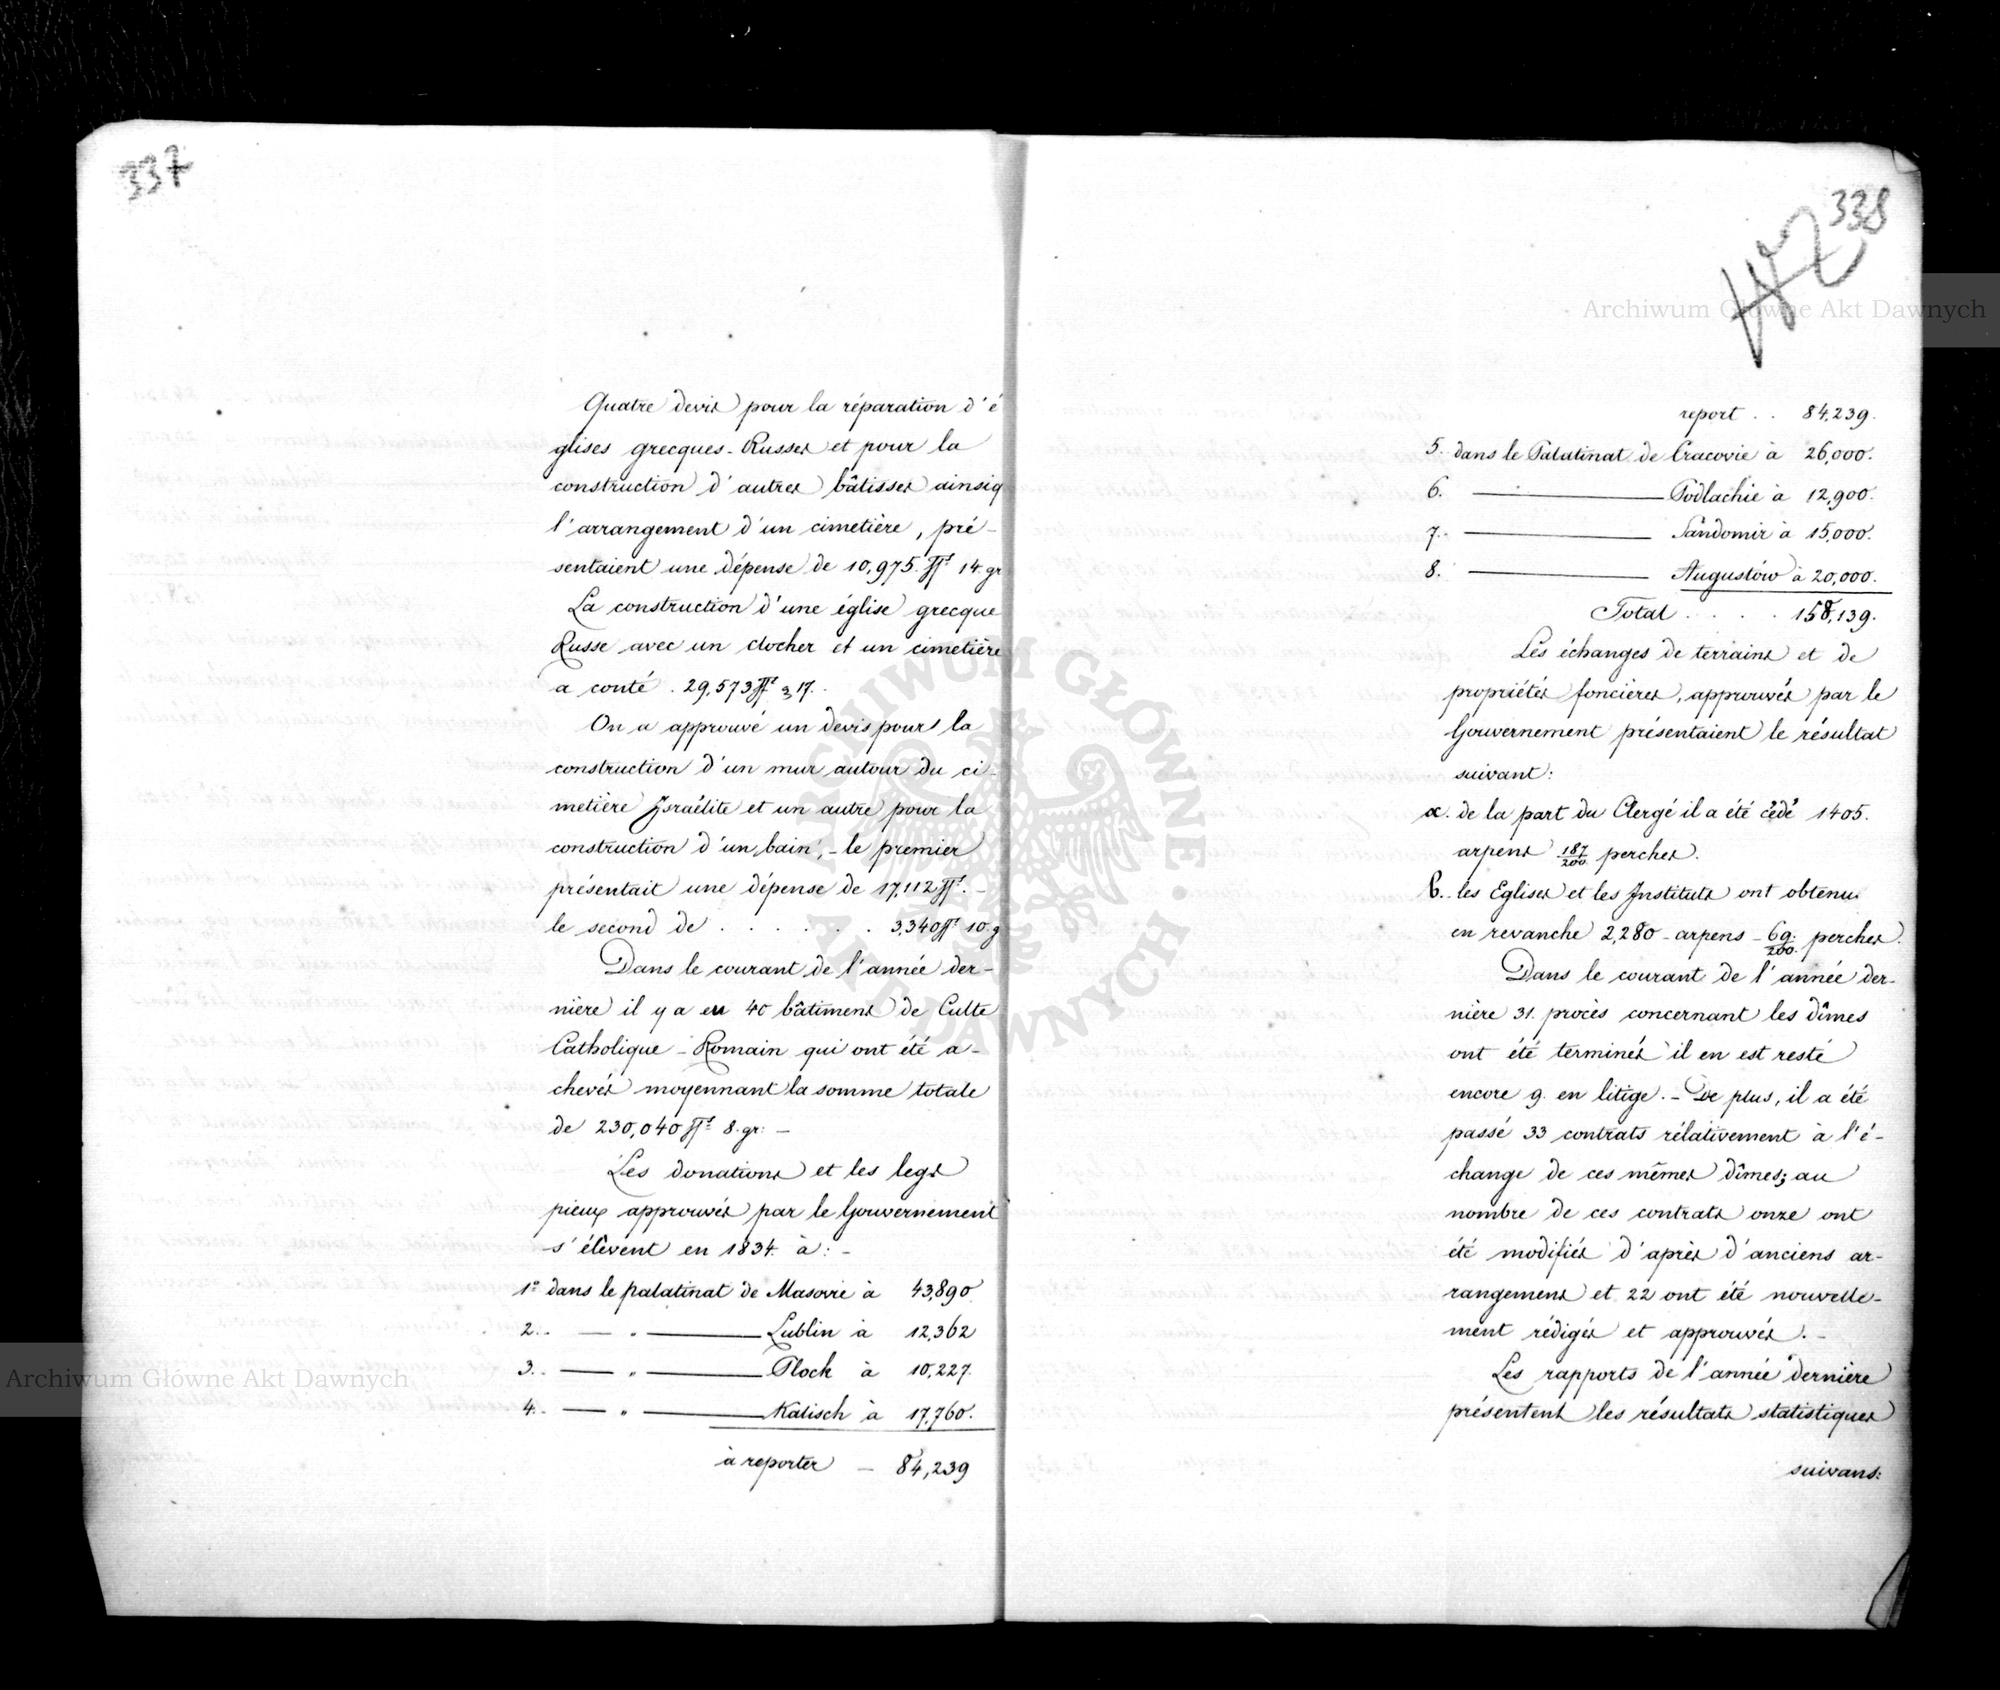 337
Quatre devis pour la réparation d'é
glises grecques-Russes et pour la
construction d'autres bâtisses ainsiq
l'arrangement d'un cimetière, pré-
sentaient une dépense de 10,975. fl. 14. gr
La construction d'une église grecque
Russe avec un clocher et un cimetière
a conté. 29,573 fl. 17.
On a approuvé un devis pour la
construction d'un mur autour du ci-
metière Israélite et un autre pour la
construction d'un bain, - le premier
présentait une dépense de 17,112 fl. -
le second de . . . . . . 3,340 fl. 10. g
Dans le courant de l'année der-
nière il y a eu 40 bâtimens de Culte
Catholique-Romain qui ont été a-
chevés moyennant la somme totale
de 230,040 fl. 8. gr: -
Les donations et les legs
pieux approuvés par le Gouvernement
s'élèvent en 1834. à: -
1° dans le palatinat de Masovie à 43,890
2. — „ — Lublin à 12,362
3. — „ — Plock à 10,227.
4. — „ — Kalisch à 17,760.
à reporter — 84,239
338
report . . 84,239.
5. dans le Palatinat de Cracovie à 26,000.
6. — Podlachie à 12,900.
7. — Sandomir à 15,000.
8. — Augustów à 20,000.
Total . . . . 158,139.
Les échanges de terrains et de
propriétés foncières, approuvés par le
Gouvernement présentaient le résultat
suivant:
a. de la part du Clergé il a été cédé 1405.
arpens 187/200 perches.
b. les Eglises et les Instituts ont obtenu
en revanche 2,280 - arpens - 69/200. perches.
Dans le courant de l'année der-
nière 31. procès concernant les dîmes
ont été terminés il en est resté
encore 9. en litige. - De plus, il a été
passé 33 contrats rélativement à l'é-
change de ces mêmes dîmes; au
nombre de ces contrats onze ont
été modifiés d'après d'anciens ar-
rangemens et 22 ont été nouvelle-
ment rédigés et approuvés. -
Les rapports de l'année dernière
présentent les résultats statistiques
suivans:
Archiwum Główne Akt Dawnych
Archiwum Główne Akt Dawnych
ARCHIWUM GŁÓWNE AKT DAWNYCH